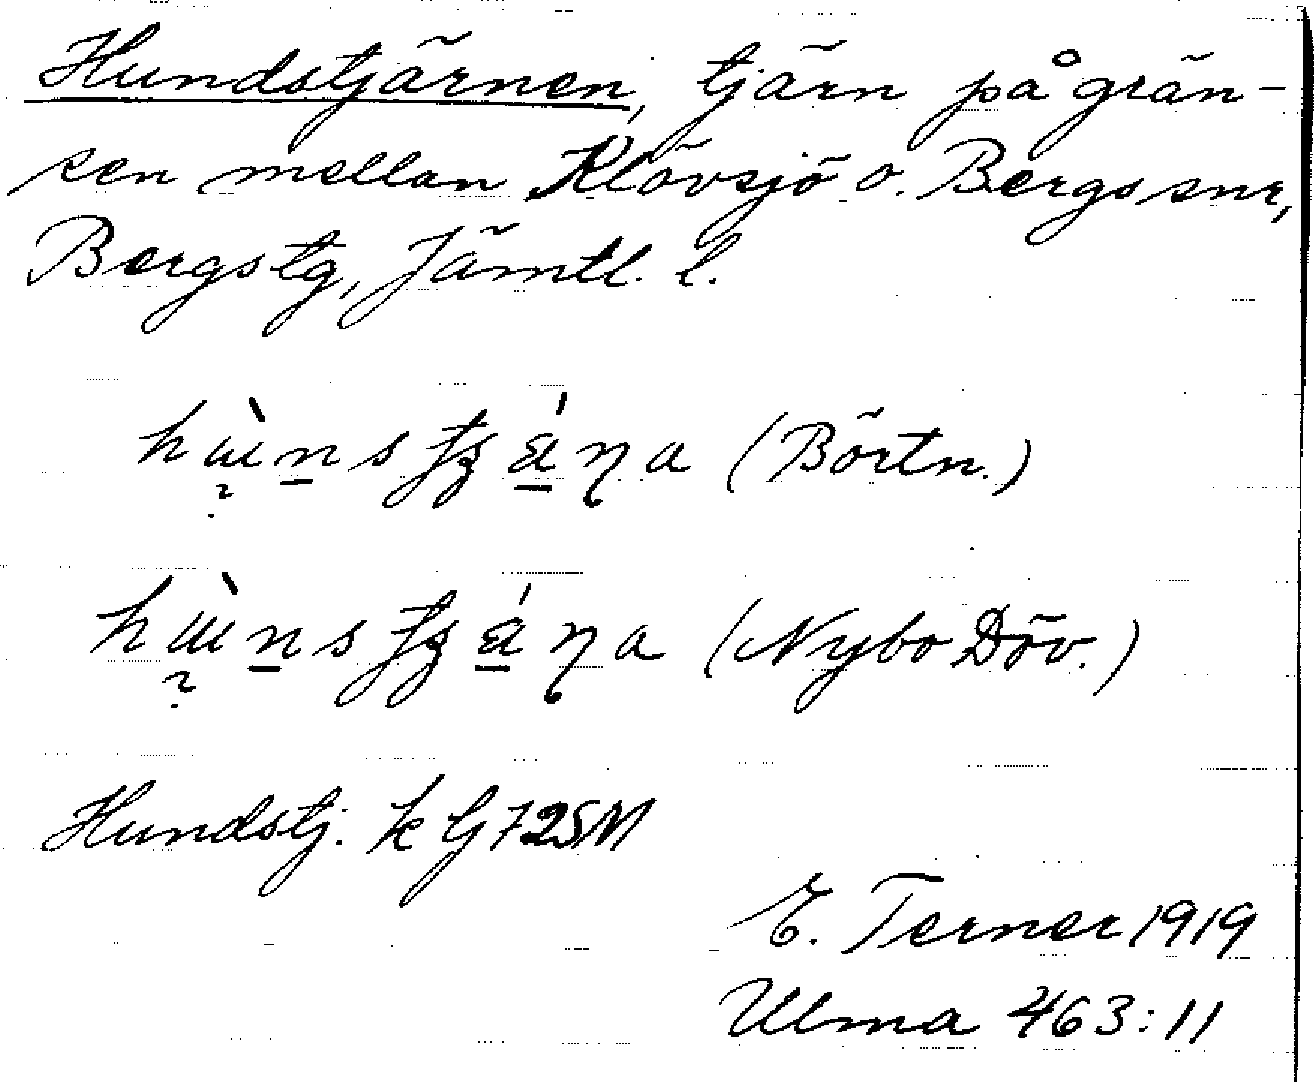 Hundstjärnen, tjärn på grän-
sen mellan Klövsjö o. Bergs snr,
Bergs tg, Jämtl. l.
(Börtn.)
(Nybo Döv.)
Hundstj. k G 72SM
E. Terner 1919
Ulma 463:11